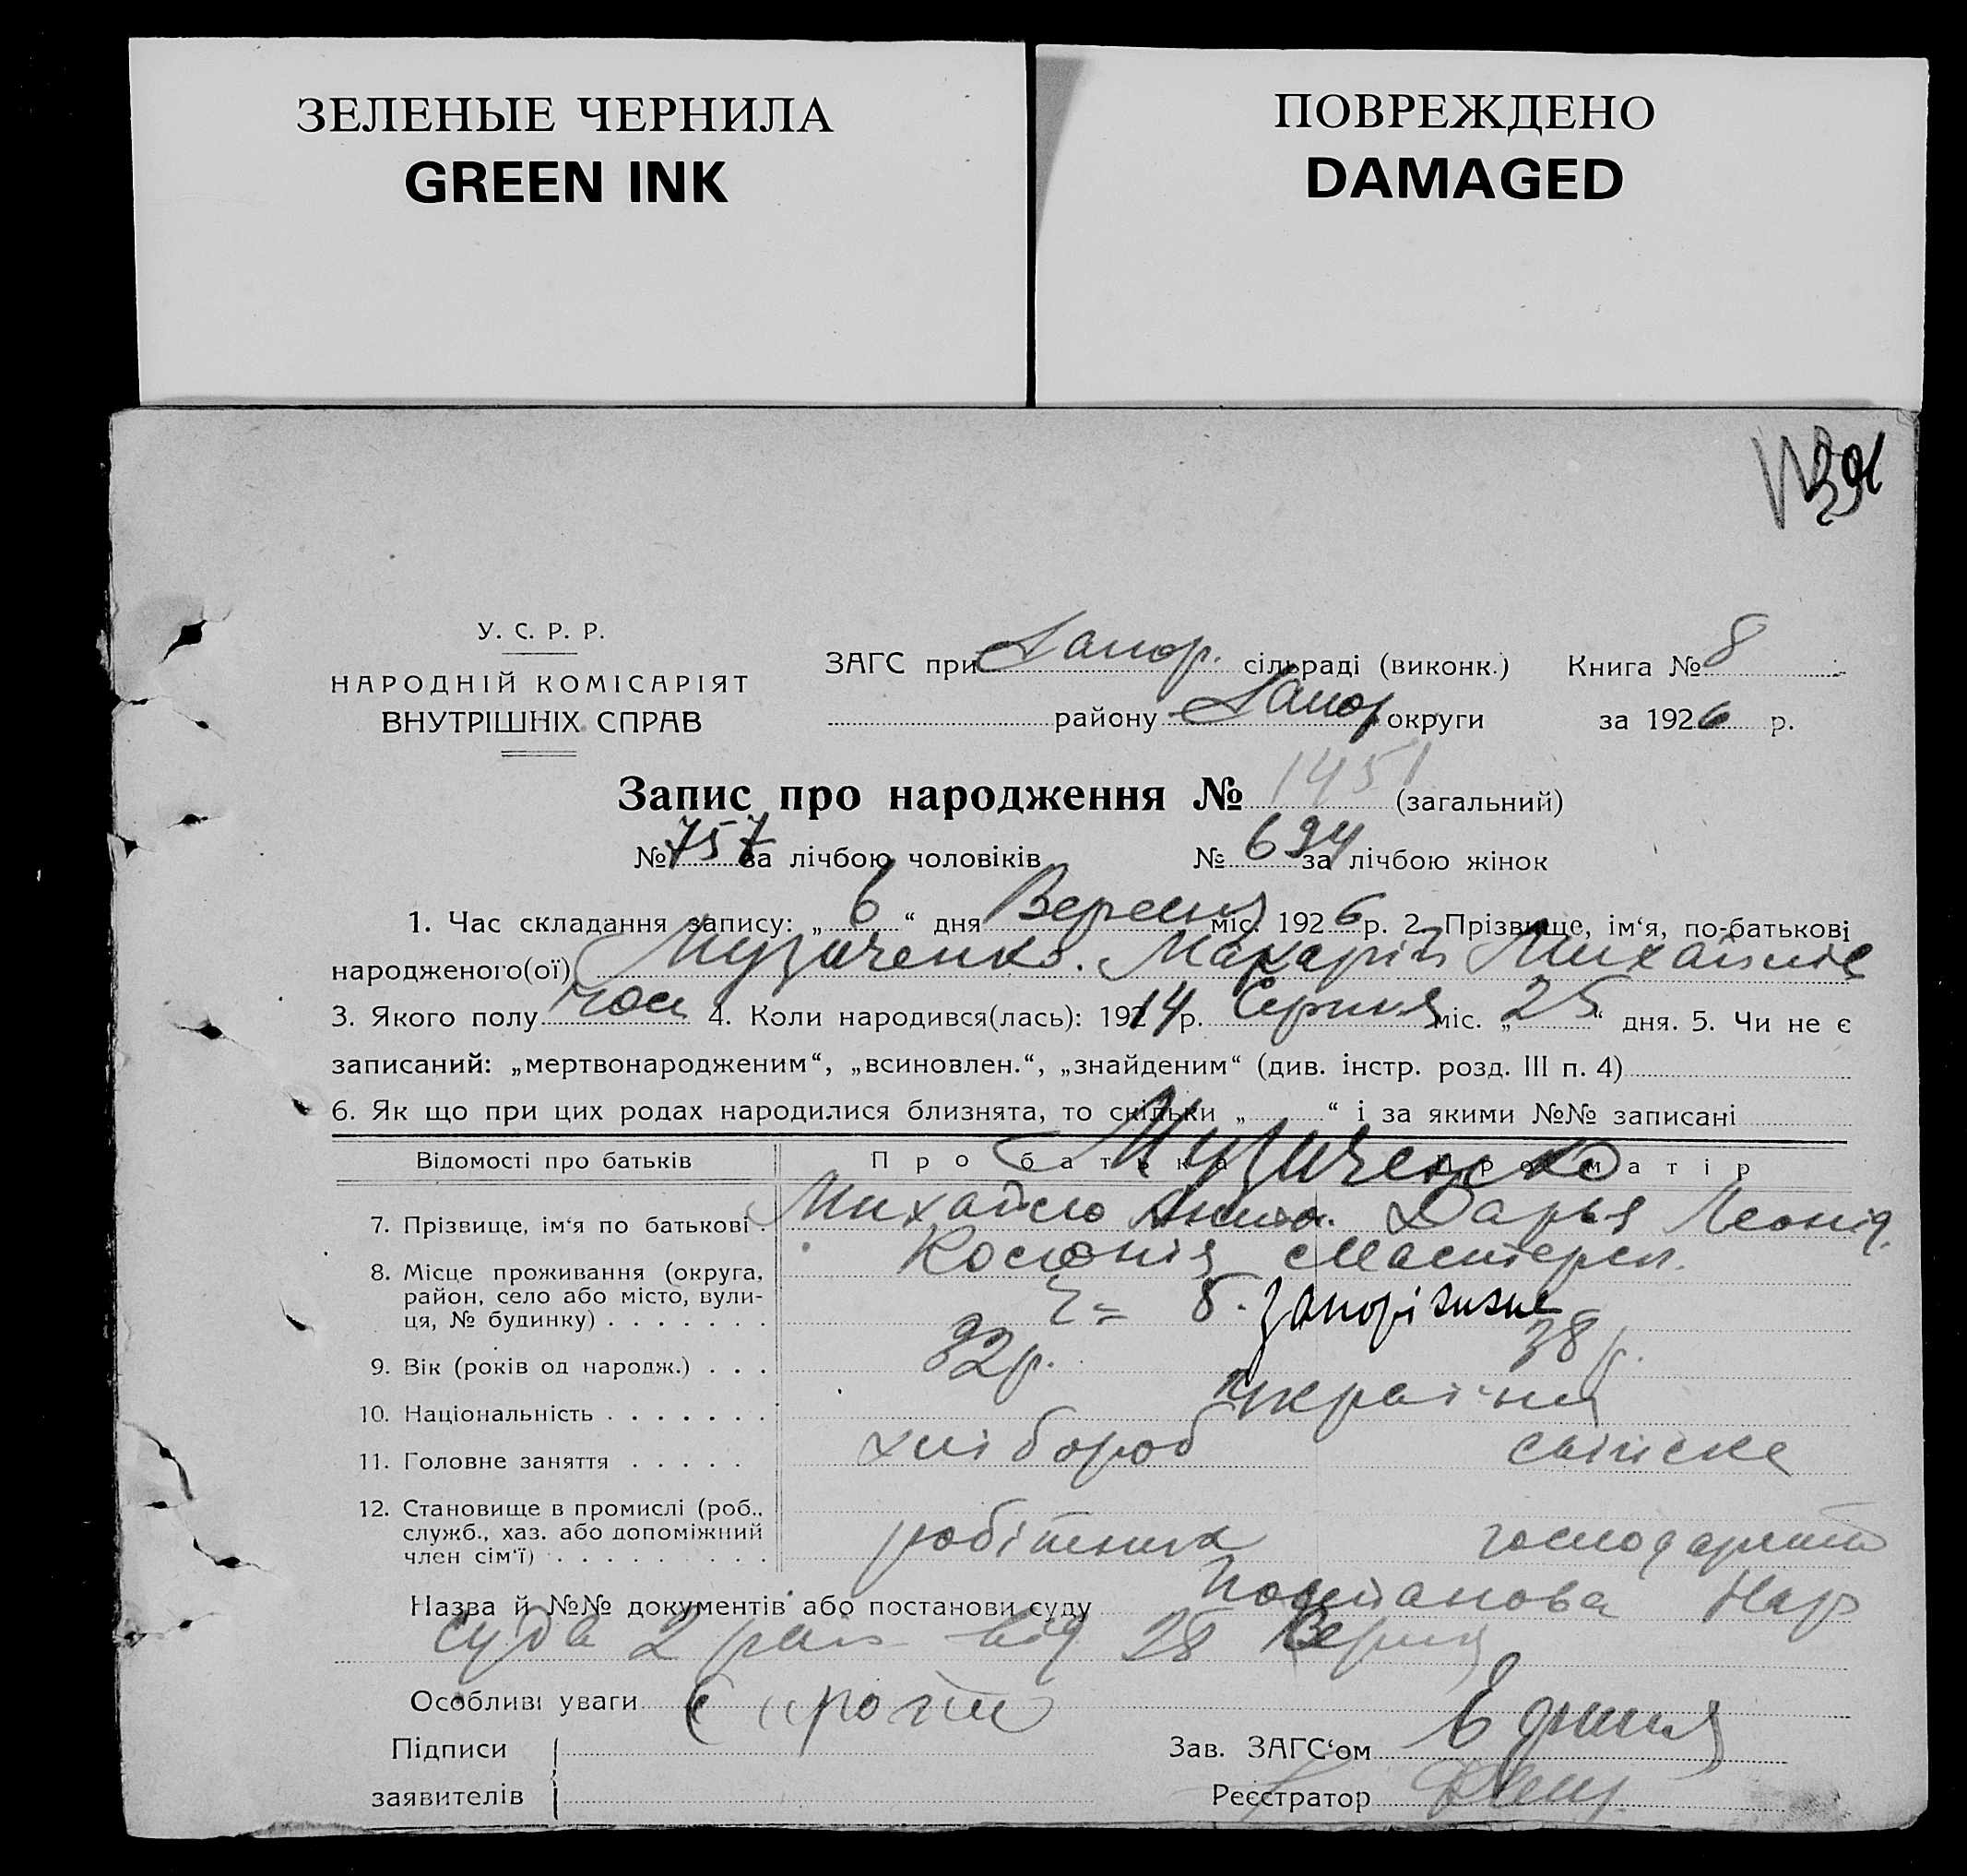 ЗЕЛЕНЫЕ ЧЕРНИЛА
GREEN INK
ПОВРЕЖДЕНО
DAMAGED
У. С. Р. Р.
НАРОДНІЙ КОМІСАРІЯТ
ВНУТРІШНІХ СПРАВ
ЗАГС при Запор. сільраді (виконк.) Книга № 8
району Запор округи за 1926 р.
Запис про народження № 1451 (загальний)
№ 757 за лічбою чоловіків № 694 за лічбою жінок
1. Час складання запису: „6“ дня Вересня міс. 1926 р. 2. Прізвище, ім‘я, по-батькові
народженого(ої) Музиченко. Макарій Михайлів
3. Якого полу чол 4. Коли народився(лась): 1914 р. Серпня міс. „25“ дня. 5. Чи не є
записаний: „мертвонародженим“, „всиновлен.“, „знайденим“ (див. інстр. розд. III п. 4)
6. Як що при цих родах народилися близнята, то скільки „ “ і за якими №№ записані
Відомості про батьків Про батька Про матір
Музиченко
7. Прізвище, ім‘я по батькові. Михайло Дарья Леонід.
8. Місце проживання (округа, район, село або місто, вулиця, № будинку) Колонія Мастерск.
Ч= 8. Запоріжжє
9. Вік (років од народж.) 32р. 38 р.
10. Національність україн
11. Головне заняття хлібороб сільске
12. Становище в промислі (роб., служб., хаз. або допоміжний член сім‘ї) робітник господарство
Назва й №№ документів або постанови суду Постанова Нар
суда 2 рай від 28 Серпня
Особливі уваги
Підписи
заявителів
Зав. ЗАГС‘ом
Реєстратор